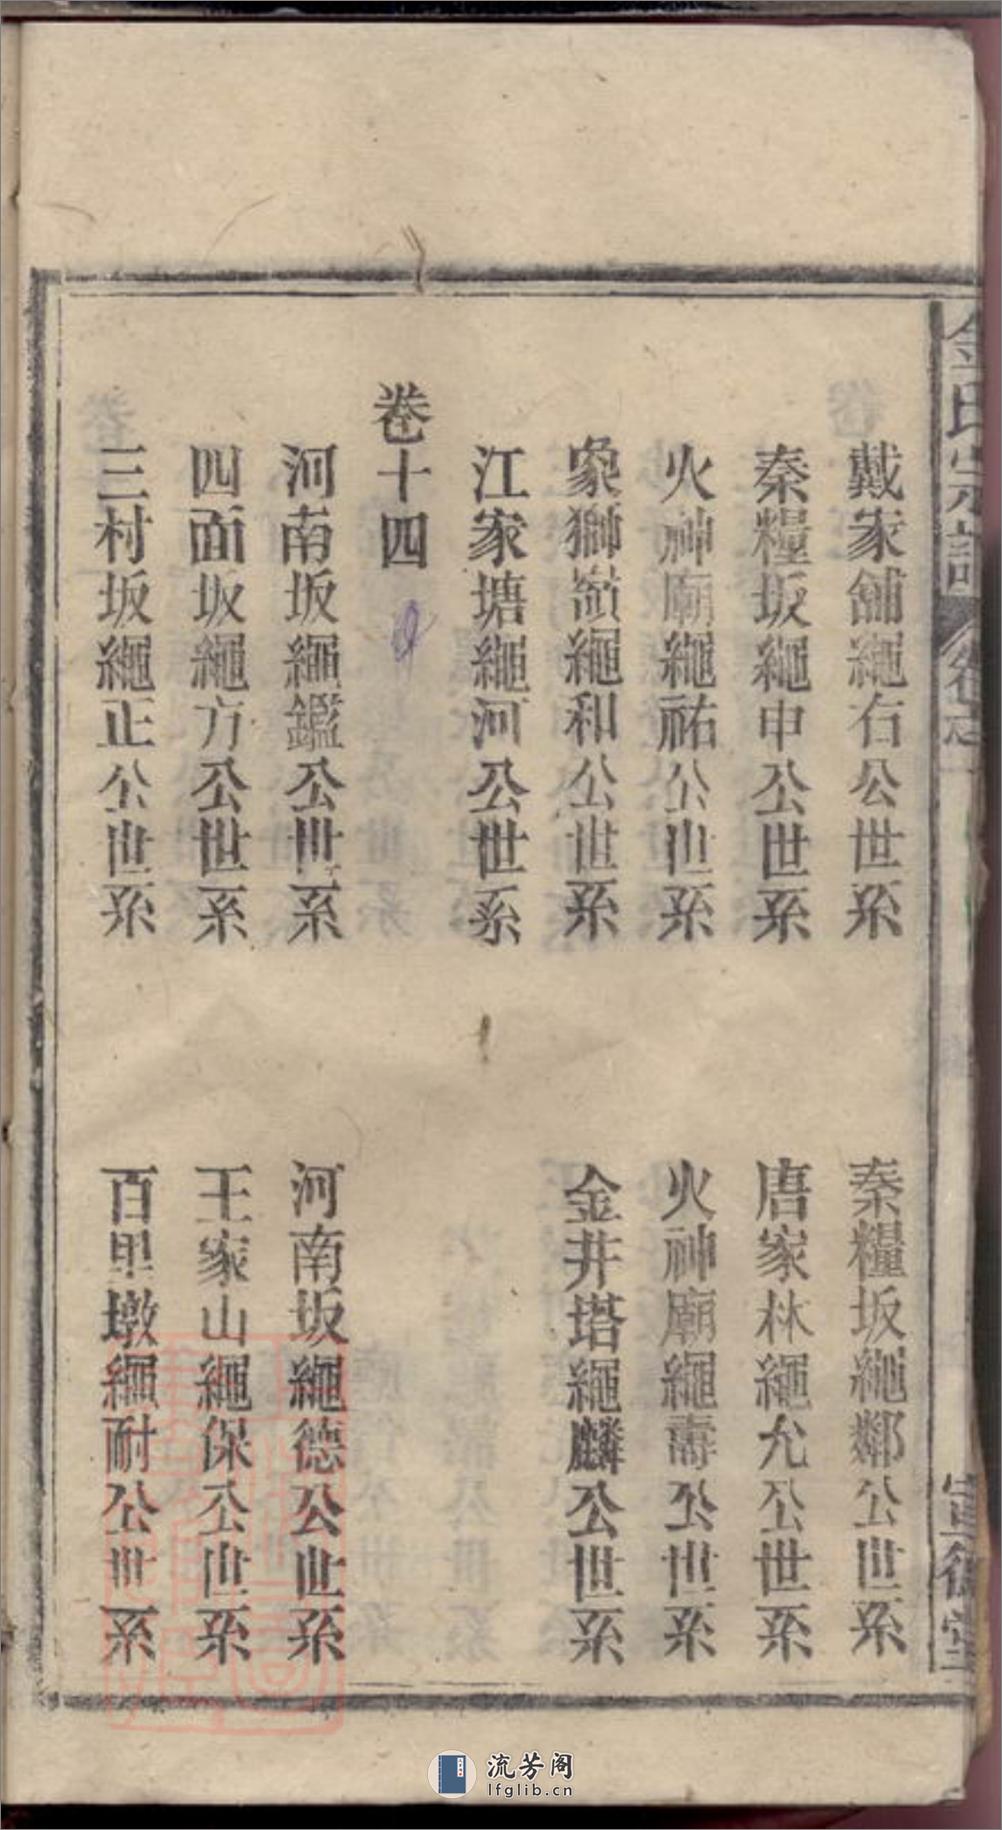 戴家舖繩石公世系
秦糧坂繩鄰公世系
秦糧坂繩申公世系
唐家林繩允公世系
火神廟繩祐公世系
火神廟繩壽公世系
象獅嶺繩和公世系
金井塔繩麟公世系
江家塘繩河公世系
卷十四
河南坂繩鑑公世系
河南坂繩德公世系
四面坂繩方公世系
王家山繩保公世系
三村坂繩正公世系
百里墩繩耐公世系
金氏宗譜
卷之一
堂
流芳阁
lfglib.cn